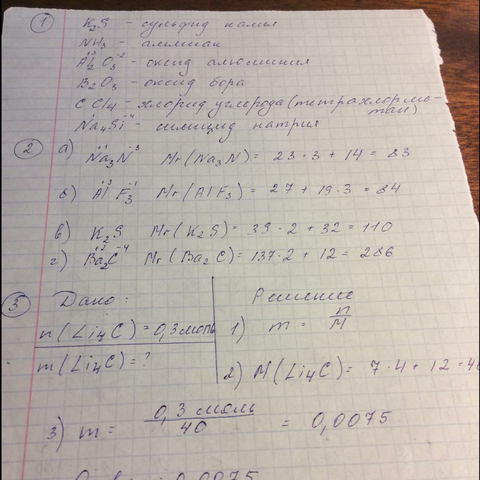 1 K2S - сульфид калия
NH3 - аммиак
Al2O3 - оксид алюминия
+3 -2
B2O3 - оксид бора
CCl4 - хлорид углерода (тетрахлорме-
тан)
+1 -4
Na4Si - силицид натрия
2 а) Na3N Mr(Na3N) = 23·3 + 14 = 83
+1 -3
б) AlF3 Mr(AlF3) = 27 + 19·3 = 84
+3 -1
в) K2S Mr(K2S) = 39·2 + 32 = 110
г) Ba2C Mr(Ba2C) = 137·2 + 12 = 286
+2 -4
3 Дано: Решение
n(Li4C) = 0,3 моль 1) m = n/M
m(Li4C) = ? 2) M(Li4C) = 7·4 + 12 = 40
3) m = 0,3 моль/40 = 0,0075
0,0075